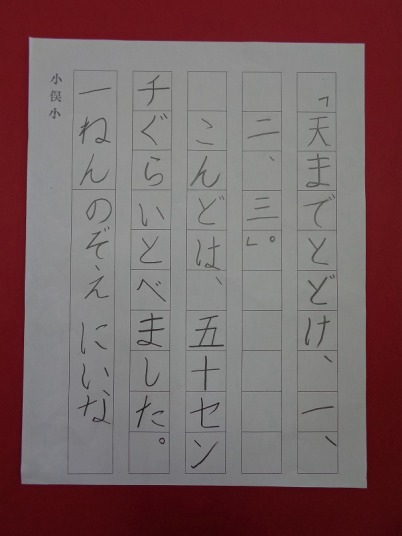 「天までとどけ、一、
二、三」。
こんどは、五十セン
チぐらいとべました。
一ねん のぞえ にいな
小俣小